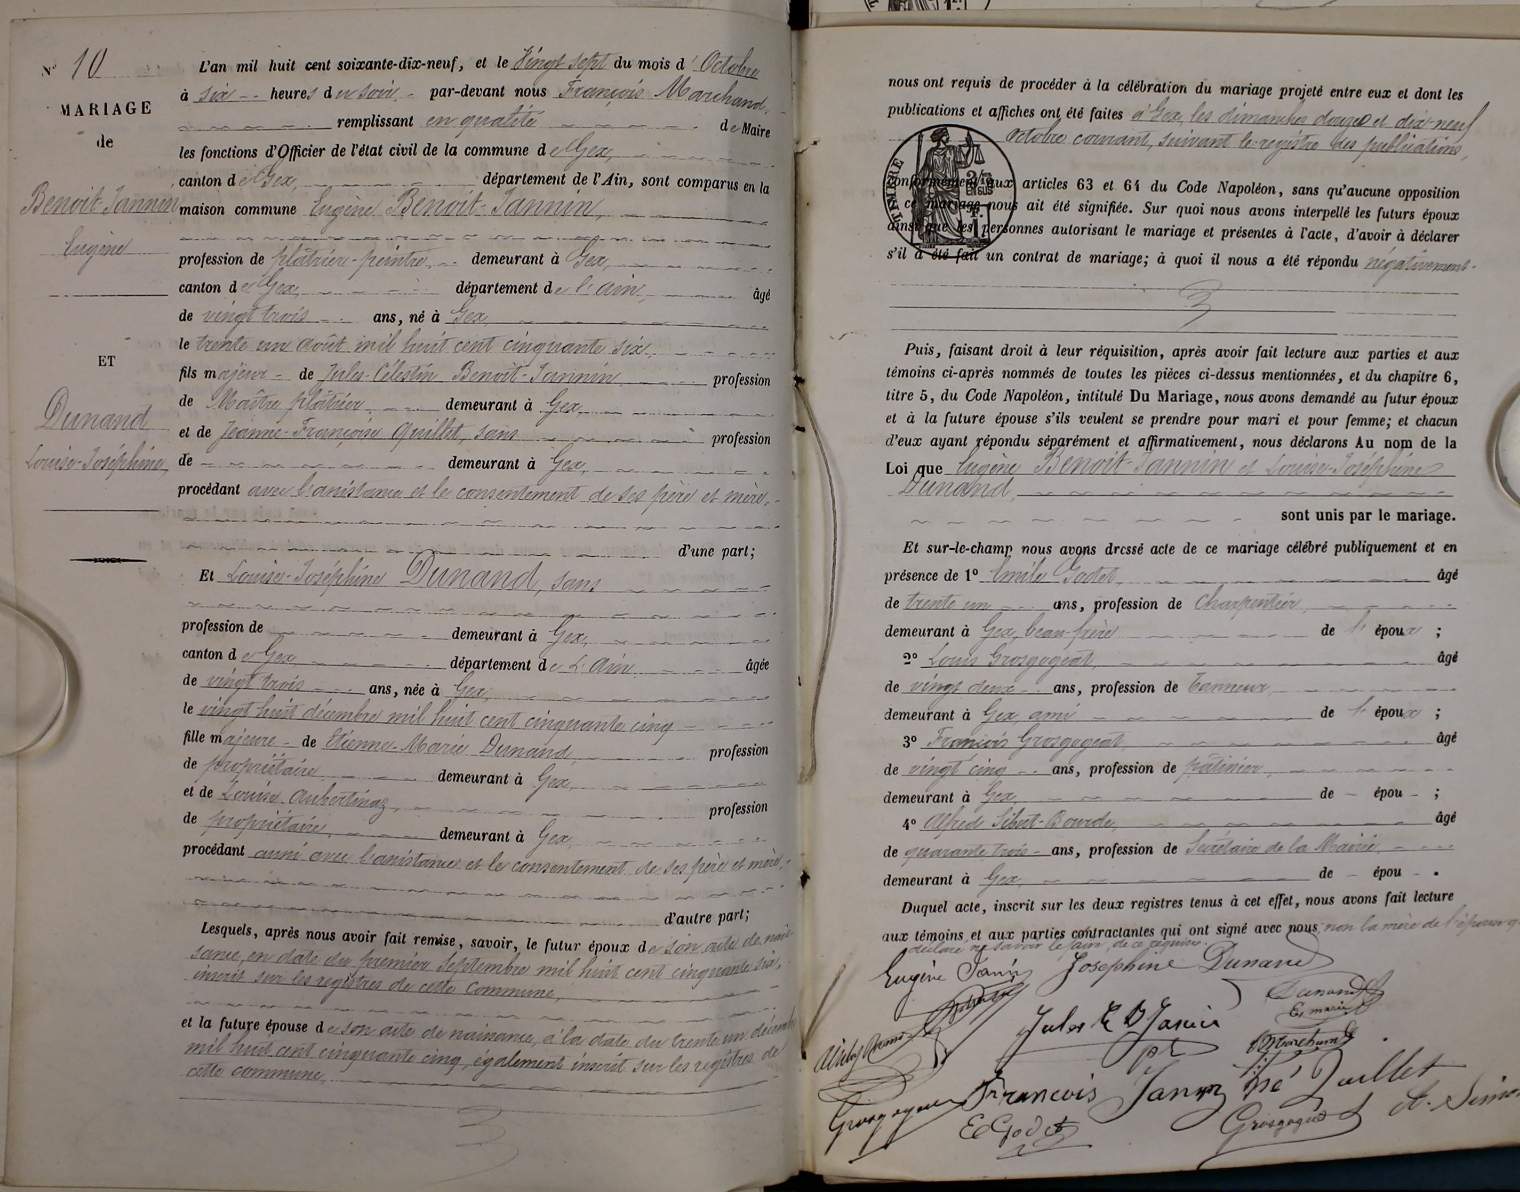 N° 10
MARIAGE
de
Benoit-Jannin
Eugène
ET
Dunand
Louise-Joséphine
L'an mil huit cent soixante-dix-neuf, et le Vingt sept du mois d'Octobre
à six heures du soir par-devant nous François Marchand,
remplissant en qualité de Maire
les fonctions d'Officier de l'état civil de la commune de Gex,
canton de Gex, département de l'Ain, sont comparus en la
maison commune Eugène Benoit-Jannin,
profession de plâtrier-peintre, demeurant à Gex,
canton de Gex, département de l'Ain, âgé
de vingt trois ans, né à Gex
le trente un août mil huit cent cinquante six,
fils majeur de Jules-Célestin Benoit-Jannin profession
de Maître plâtrier, demeurant à Gex,
et de Jeanne-Françoise Quillet, sans profession
de demeurant à Gex,
procédant avec l'assistance et le consentement de ses père et mère,
d'une part;
Et Louise-Joséphine Dunand, sans
profession de demeurant à Gex,
canton de Gex département de L'Ain âgée
de vingt trois ans, née à Gex,
le vingt huit décembre mil huit cent cinquante cinq
fille majeure de Etienne-Marie Dunand, profession
de propriétaire demeurant à Gex,
et de Louise Aubertinaz, profession
de propriétaire, demeurant à Gex,
procédant aussi avec l'assistance et le consentement de ses père et mère,
d'autre part;
Lesquels, après nous avoir fait remise, savoir, le futur époux de son acte de nais-
sance, en date du premier Septembre mil huit cent cinquante six,
inscrit sur les registres de cette Commune,
et la future épouse de son acte de naissance, à la date du trente un décembre
mil huit cent cinquante cinq, également inscrit sur les registres de
cette commune,
nous ont requis de procéder à la célébration du mariage projeté entre eux et dont les
publications et affiches ont été faites à Gex, les dimanches douze et dix-neuf
octobre courant, suivant le registre des publications,
TIMBRE
2/10
EN SUS
conformément aux articles 63 et 64 du Code Napoléon, sans qu'aucune opposition
à ce mariage nous ait été signifiée. Sur quoi nous avons interpellé les futurs époux
ainsi que les personnes autorisant le mariage et présentes à l'acte, d'avoir à déclarer
s'il a été fait un contrat de mariage; à quoi il nous a été répondu négativement.
Puis, faisant droit à leur réquisition, après avoir fait lecture aux parties et aux
témoins ci-après nommés de toutes les pièces ci-dessus mentionnées, et du chapitre 6,
titre 5, du Code Napoléon, intitulé Du Mariage, nous avons demandé au futur époux
et à la future épouse s'ils veulent se prendre pour mari et pour femme; et chacun
d'eux ayant répondu séparément et affirmativement, nous déclarons Au nom de la
Loi que Eugène Benoit-Jannin et Louise-Joséphine
Dunand,
sont unis par le mariage.
Et sur-le-champ nous avons drcssé acte de ce mariage célébré publiquement et en
présence de 1° Emile Godet, âgé
de trente un ans, profession de Charpentier,
demeurant à Gex, beau-frère de l'époux;
2° Louis Grosgogeat, âgé
de vingt deux ans, profession de tanneur,
demeurant à Gex, ami de l'époux;
3° François Grosgogeat, âgé
de vingt cinq ans, profession de
demeurant à Gex de épou ;
4° Alfred Sibert-Bourde, âgé
de quarante trois ans, profession de Secrétaire de la Mairie,
demeurant à Gex, de épou .
Duquel acte, inscrit sur les deux registres tenus à cet effet, nous avons fait lecture
aux témoins et aux parties contractantes qui ont signé avec nous non la mère de l'épouse q
déclaré ne savoir le faire de ce requise.
Eugène Janin Josephine Dunand
Dunand
Et marie
Jules Janin
Marchand
François Janin Quillet
E Godet
Grosgogeat